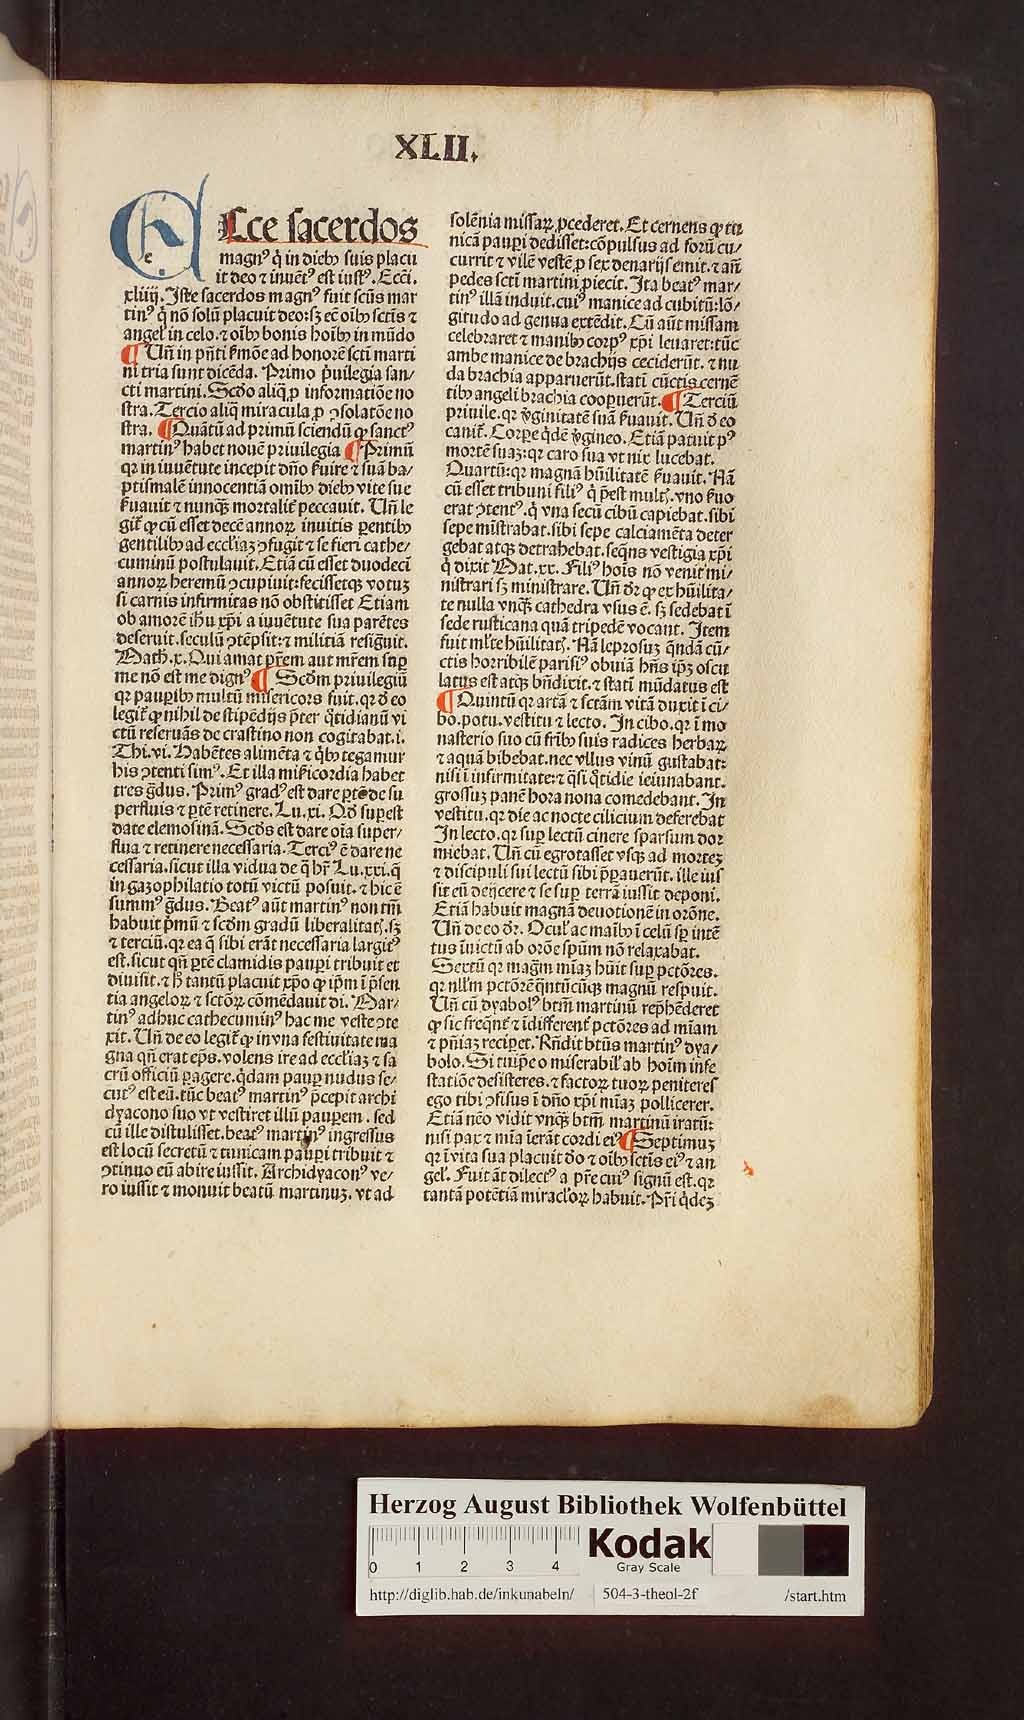 XLII.
Ecce sacerdos
magnꝰ q̇ in diebꝫ suis placu
it deo ⁊ inuētꝰ est iustꝰ. Ecci.
xliiij. Iste sacerdos magnꝰ fuit scūs mar
tinꝰ q̇ nō solū placuit deo: sꝫ eē oībꝫ sctīs ⁊
angel̓ in celo. ⁊ oībꝫ bonis hoībꝫ in mūdo
¶ Un̄ in pn̄ti ẜmōe ad honorē scti marti
ni tria sunt dicēda. Primo p̄uilegia san/
cti martini. Scd̓o aliq̄ ꝓ informatiōe no
stra. Tercio aliq̄ miracula ꝓ ꝯsolatōe no
stra. ¶ Quātū ad primū sciendū ꝙ sanctꝰ
martinꝰ habet nouē priuilegia ¶ Primū
qꝛ in iuuētute incepit dn̄o ẜuire ⁊ suā ba/
ptismalē innocentiā omībꝫ diebꝫ vite sue
ẜuauit ⁊ nunqꝫ mortalit̓ peccauit. Un̄ le
git̓ ꝙ cū esset decē annoꝝ inuitis parentibꝫ
gentilibꝫ ad eccl̓iaꝫ ꝯfugit ⁊ se fieri cathe/
cuminū postulauit. Etiā cū esset duodecī
annoꝝ heremū ꝯcupiuit: fecissetqꝫ votuꝫ
si carnis infirmitas nō obstitisset Etiam
ob amorē ih̓u xp̄i a iuuētute sua parētes
deseruit. seculū ꝯtēpsit: ⁊ militiā resig̓uit.
Math̓. x. Qui amat p̄rem aut mr̄em suꝑ
me nō est me dignꝰ ¶ Scd̓m priuilegiū
qꝛ pauꝑibꝫ multū misericors fuit. qꝛ d̓ eo
legit̓ ꝙ nihil de stipēdijs p̄ter q̇tidianū vi
ctū reseruās de crastino non cogitabat. i.
Thi. vi. Habētes alimēta ⁊ q̇bꝫ tegamur
his ꝯtenti simꝰ. Et illa mīẜicordia habet
tres g̓dus. Primꝰ gradꝰ est dare ꝑtē de su
perfluis ⁊ ꝑtē retinere. Lu. xi. Qd̓ suꝑest
date elemosinā. Scd̓s est dare oīa super/
flua ⁊ retinere necessaria. Terciꝰ ē dare ne
cessaria. sicut illa vidua de q̄ hr̄ Lu. xxi. q̄
in gazophilatio totū victū posuit. ⁊ hic ē
summꝰ g̓dus. Beatꝰ aūt martinꝰ non tm̄
habuit p̄mū ⁊ scd̓m gradū liberalitat̓. sꝫ
⁊ terciū. qꝛ ea q̄ sibi erāt necessaria largitꝰ
est. sicut qn̄ ꝑtē clamidis pauꝑi tribuit et
diuisit. ⁊ h̓ tantū placuit xp̄o ꝙ ip̄m ī p̄sen
tia angeloꝝ ⁊ sctōꝝ cōmēdauit di. Mar/
tinꝰ adhuc cathecuminꝰ hac me veste ꝯte
xit. Un̄ de eo legit̓ ꝙ in vna festiuitate ma
gna qn̄ erat ep̄s. volens ire ad eccl̓iaꝫ ⁊ sa
crū officiū ꝑagere. q̇dam pauꝑ nudus se/
cutꝰ est eū. tūc beatꝰ martinꝰ p̄cepit archi
dyacono suo vt vestiret illū pauꝑem. sed
cū ille distulisset. beatꝰ martinꝰ ingressus
est locū secretū ⁊ tunicam pauꝑi tribuit ⁊
ꝯtinuo eū abire iussit. Archidyaconꝰ ve/
ro iussit ⁊ monuit beatū martinuꝫ. vt ad
solēnia missaꝝ ꝓcederet. Et cernens ꝙ tu
nicā pauꝑi dedisset: cōpulsus ad forū cu/
currit ⁊ vilē vestē ꝓ sex denarijs emit. ⁊ an̄
pedes scti martini ꝓiecit. Ita beatꝰ mar/
tinꝰ illā induit. cuiꝰ manice ad cubitū: lō/
gitudo ad genua extēdit. Cū aūt missam
celebraret ⁊ manibꝫ corpꝰ xp̄i leuaret: tūc
ambe manice de brachijs ceciderūt. ⁊ nu
da brachia apparuerūt. stati cūctis cernē
tibꝫ angeli brachia cooꝑuerūt. ¶ Terciū
priuile. qꝛ v̓ginitatē suā ẜuauit. Un̄ d̓ eo
canit̓. Corꝑe q̇dē v̓gineo. Etiā patuit pꝰ
mortē suaꝫ: qꝛ caro sua vt nix lucebat.
Quartū: qꝛ magnā hūilitatē ẜuauit. Nā
cū esset tribuni filiꝰ q̇ p̄est mult̓. vno ẜuo
erat ꝯtentꝰ. q̇ vna secū cibū capiebat. sibi
sepe mīstrabat. sibi sepe calciamēta deter
gebat atqꝫ detrahebat. seqn̄s vestigia xp̄i
q̇ dixit Mat. xx. Filiꝰ hoīs nō venit mi/
nistrari sꝫ ministrare. Un̄ dr̄ ꝙ ex hūilita/
te nulla vnqꝫ cathedra vsus ē. sꝫ sedebat ī
sede rusticana quā tripedē vocant. Item
fuit ml̓te hūilitat̓. Nā leprosuꝫ q̄ndā cū/
ctis horribilē parisiꝰ obuiā hn̄s ip̄ꝫ oscu
latus est atqꝫ bn̄dixit. ⁊ stati mūdatus est
¶ Quintū qꝛ artā ⁊ sctām vitā duxit ī ci/
bo. potu. vestitu ⁊ lecto. In cibo. qꝛ ī mo
nasterio suo cū fr̄ibꝫ suis radices herbaꝝ
⁊ aquā bibebat. nec vllus vinū gustabat:
nisi ī infirmitate: ⁊ q̄si q̇tidie ieiunabant.
grossuꝫ panē hora nona comedebant. In
vestitu. qꝛ die ac nocte cilicium deferebat
In lecto. qꝛ suꝑ lectū cinere sparsum dor
miebat. Un̄ cū egrotasset vsqꝫ ad morteꝫ
⁊ discipuli sui lectū sibi p̄ꝑauerūt. ille ius
sit eū deijcere ⁊ se suꝑ terrā iussit deponi.
Etiā habuit magnā deuotionē in orōne.
Un̄ de eo dr̄. Ocul̓ ac maībꝫ ī celū sꝑ intē
tus īuictū ab orōe sp̄um nō relaxabat.
Sextū qꝛ mag̓m mīaꝫ hūit suꝑ pctōres.
qꝛ nll̓m pctōrē q̄ntūcūqꝫ magnū respuit.
Un̄ cū dyabolꝰ btm̄ martinū rep̄hēderet
ꝙ sic freqn̄t̓ ⁊ īdifferent̓ pctōres ad mīam
⁊ pn̄iaꝫ reciꝑet. Rn̄dit btūs martinꝰ dya/
bolo. Si tuip̄e o miserabil̓ ab hoīm infe
statiōe desisteres. ⁊ factoꝝ tuoꝝ peniteres
ego tibi ꝯfisus ī dn̄o xp̄i mīaꝫ pollicerer.
Etiā nēo vidit vnqꝫ btm̄ martinū iratū:
nisi pax ⁊ mīa īerāt cordi eiꝰ ¶ Septimuꝫ
qꝛ ī vita sua placuit d̓o ⁊ oībꝫ sctīs eiꝰ ⁊ an
gel̓. Fuit āt dilectꝰ a p̄re cuiꝰ signū est. qꝛ
tantā potētiā miracl̓oꝝ habuit. Pr̄i q̇deꝫ
Herzog August Bibliothek Wolfenbüttel
0 1 2 3 4
Kodak
Gray Scale
http://diglib.hab.de/inkunabeln/ 504-3-theol-2f /start.htm